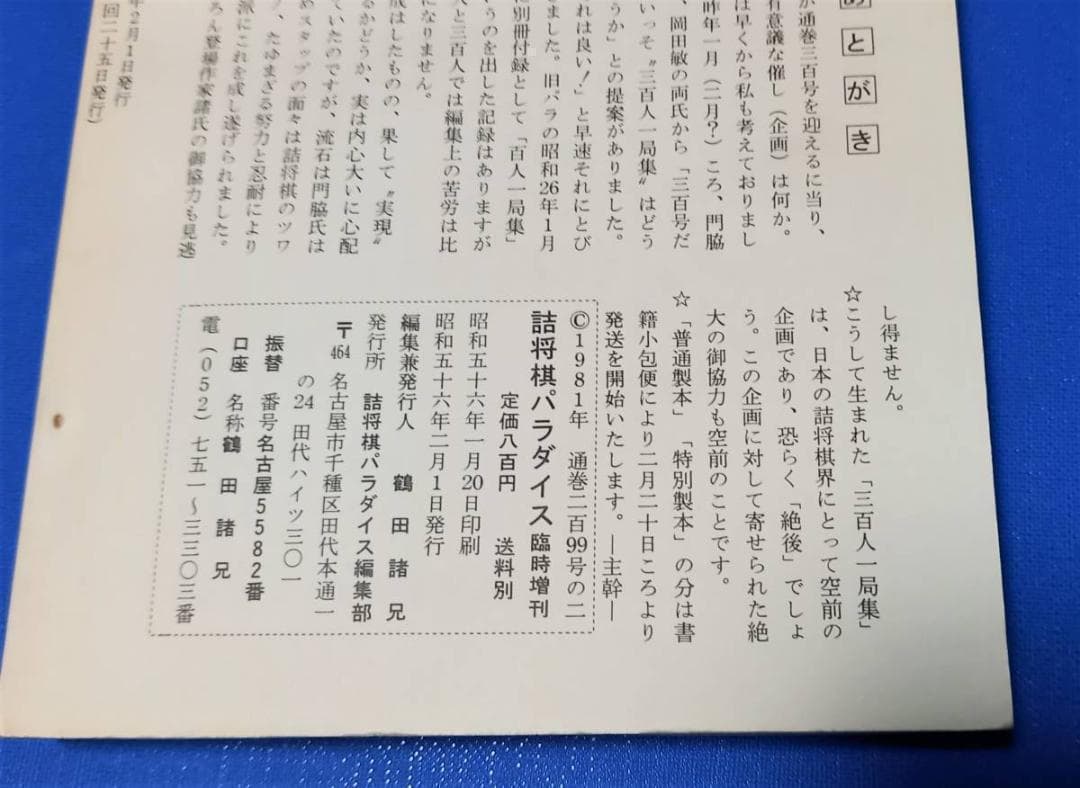 あとがき
が通巻三百号を迎えるに当り、
有意義な催し（企画）は何か。
は早くから私も考えておりまし
昨年一月（二月？）ころ、門脇
、岡田敏の両氏から「三百号だ
いっそ〝三百人一局集〟はどう
うか」との提案がありました。
れは良い！」と早速それにとび
ました。旧パラの昭和26年1月
に別冊付録として「百人一局集」
うのを出した記録はありますが
人と三百人では編集上の苦労は比
になりません。
成はしたものの、果して〝実現〟
るかどうか、実は内心大いに心配
ていたのですが、流石は門脇氏は
めスタッフの面々は詰将棋のツワ
、たゆまざる努力と忍耐により
派にこれを成し遂げられました。
ろん登場作家諸氏の御協力も見逃
し得ません。
☆こうして生まれた「三百人一局集」
は、日本の詰将棋界にとって空前の
企画であり、恐らく「絶後」でしょ
う。この企画に対して寄せられた絶
大の御協力も空前のことです。
☆「普通製本」「特別製本」の分は書
籍小包便により二月二十日ころより
発送を開始いたします。―主幹―
©1981年 通巻二百99号の二
詰将棋パラダイス 臨時増刊
定価八百円 送料別
昭和五十六年一月20日印刷
昭和五十六年二月1日発行
編集兼発行人 鶴田諸兄
発行所 詰将棋パラダイス編集部
〒464 名古屋市千種区田代本通一
の24 田代ハイツ三〇一
振替 番号名古屋5582番
口座 名称鶴田諸兄
電（052）七五一〜三三〇三番
年2月1日発行
回二十五日発行）